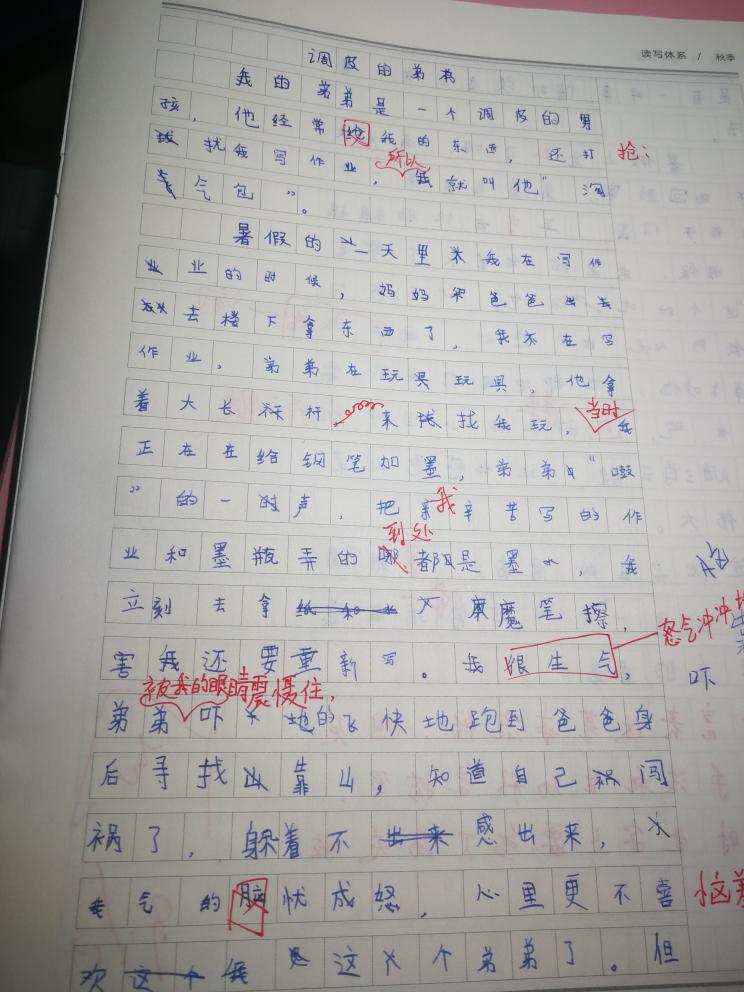 读写体系 / 秋季
调皮的弟弟
我的弟弟是一个调皮的男
孩，他经常抢我的东西，还打
抢：
扰我写作业，所以我就叫他“淘
气包”。
暑假的一天里我在写作
业的时候，妈妈和爸爸出去
去楼下拿东西了，我在写
作业，弟弟在玩具玩具，他拿
着大长杆来找我玩，当时我
正在在给钢笔加墨，弟弟“啜
”的一时声，把我辛苦写的作
业和墨瓶弄的到处都是墨，我
立刻去拿魔笔擦，
害我还要重新写。我很生气，
怒气冲冲地
吓
被我的眼睛震慑住，
弟弟吓地的飞快地跑到爸爸身
后寻找靠山，知道自己闯
祸了，躲着不感出来，
气的脑忧成怒，心里更不喜
恼羞
欢这个弟弟了。但